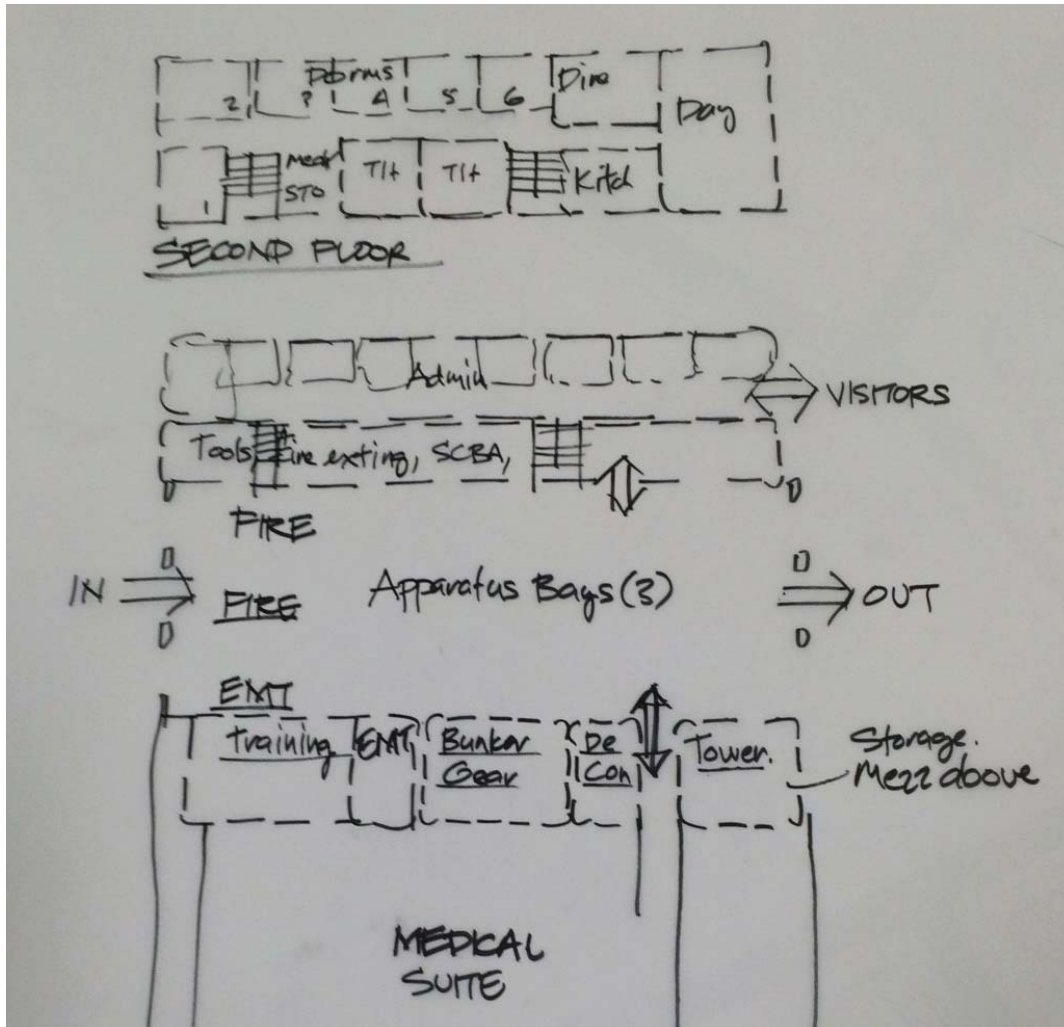 Dorms
2 3 4 5 6
Dine
Day
1
Mech
STO
Tlt
Tlt
Kitch
SECOND FLOOR
Admin
VISITORS
Tools, Fire exting, SCBA,
FIRE
IN
FIRE
Apparatus Bays (3)
OUT
EMT
Training
EMT
Bunker
Gear
De
Con
Tower.
Storage.
Mezz above
MEDICAL
SUITE